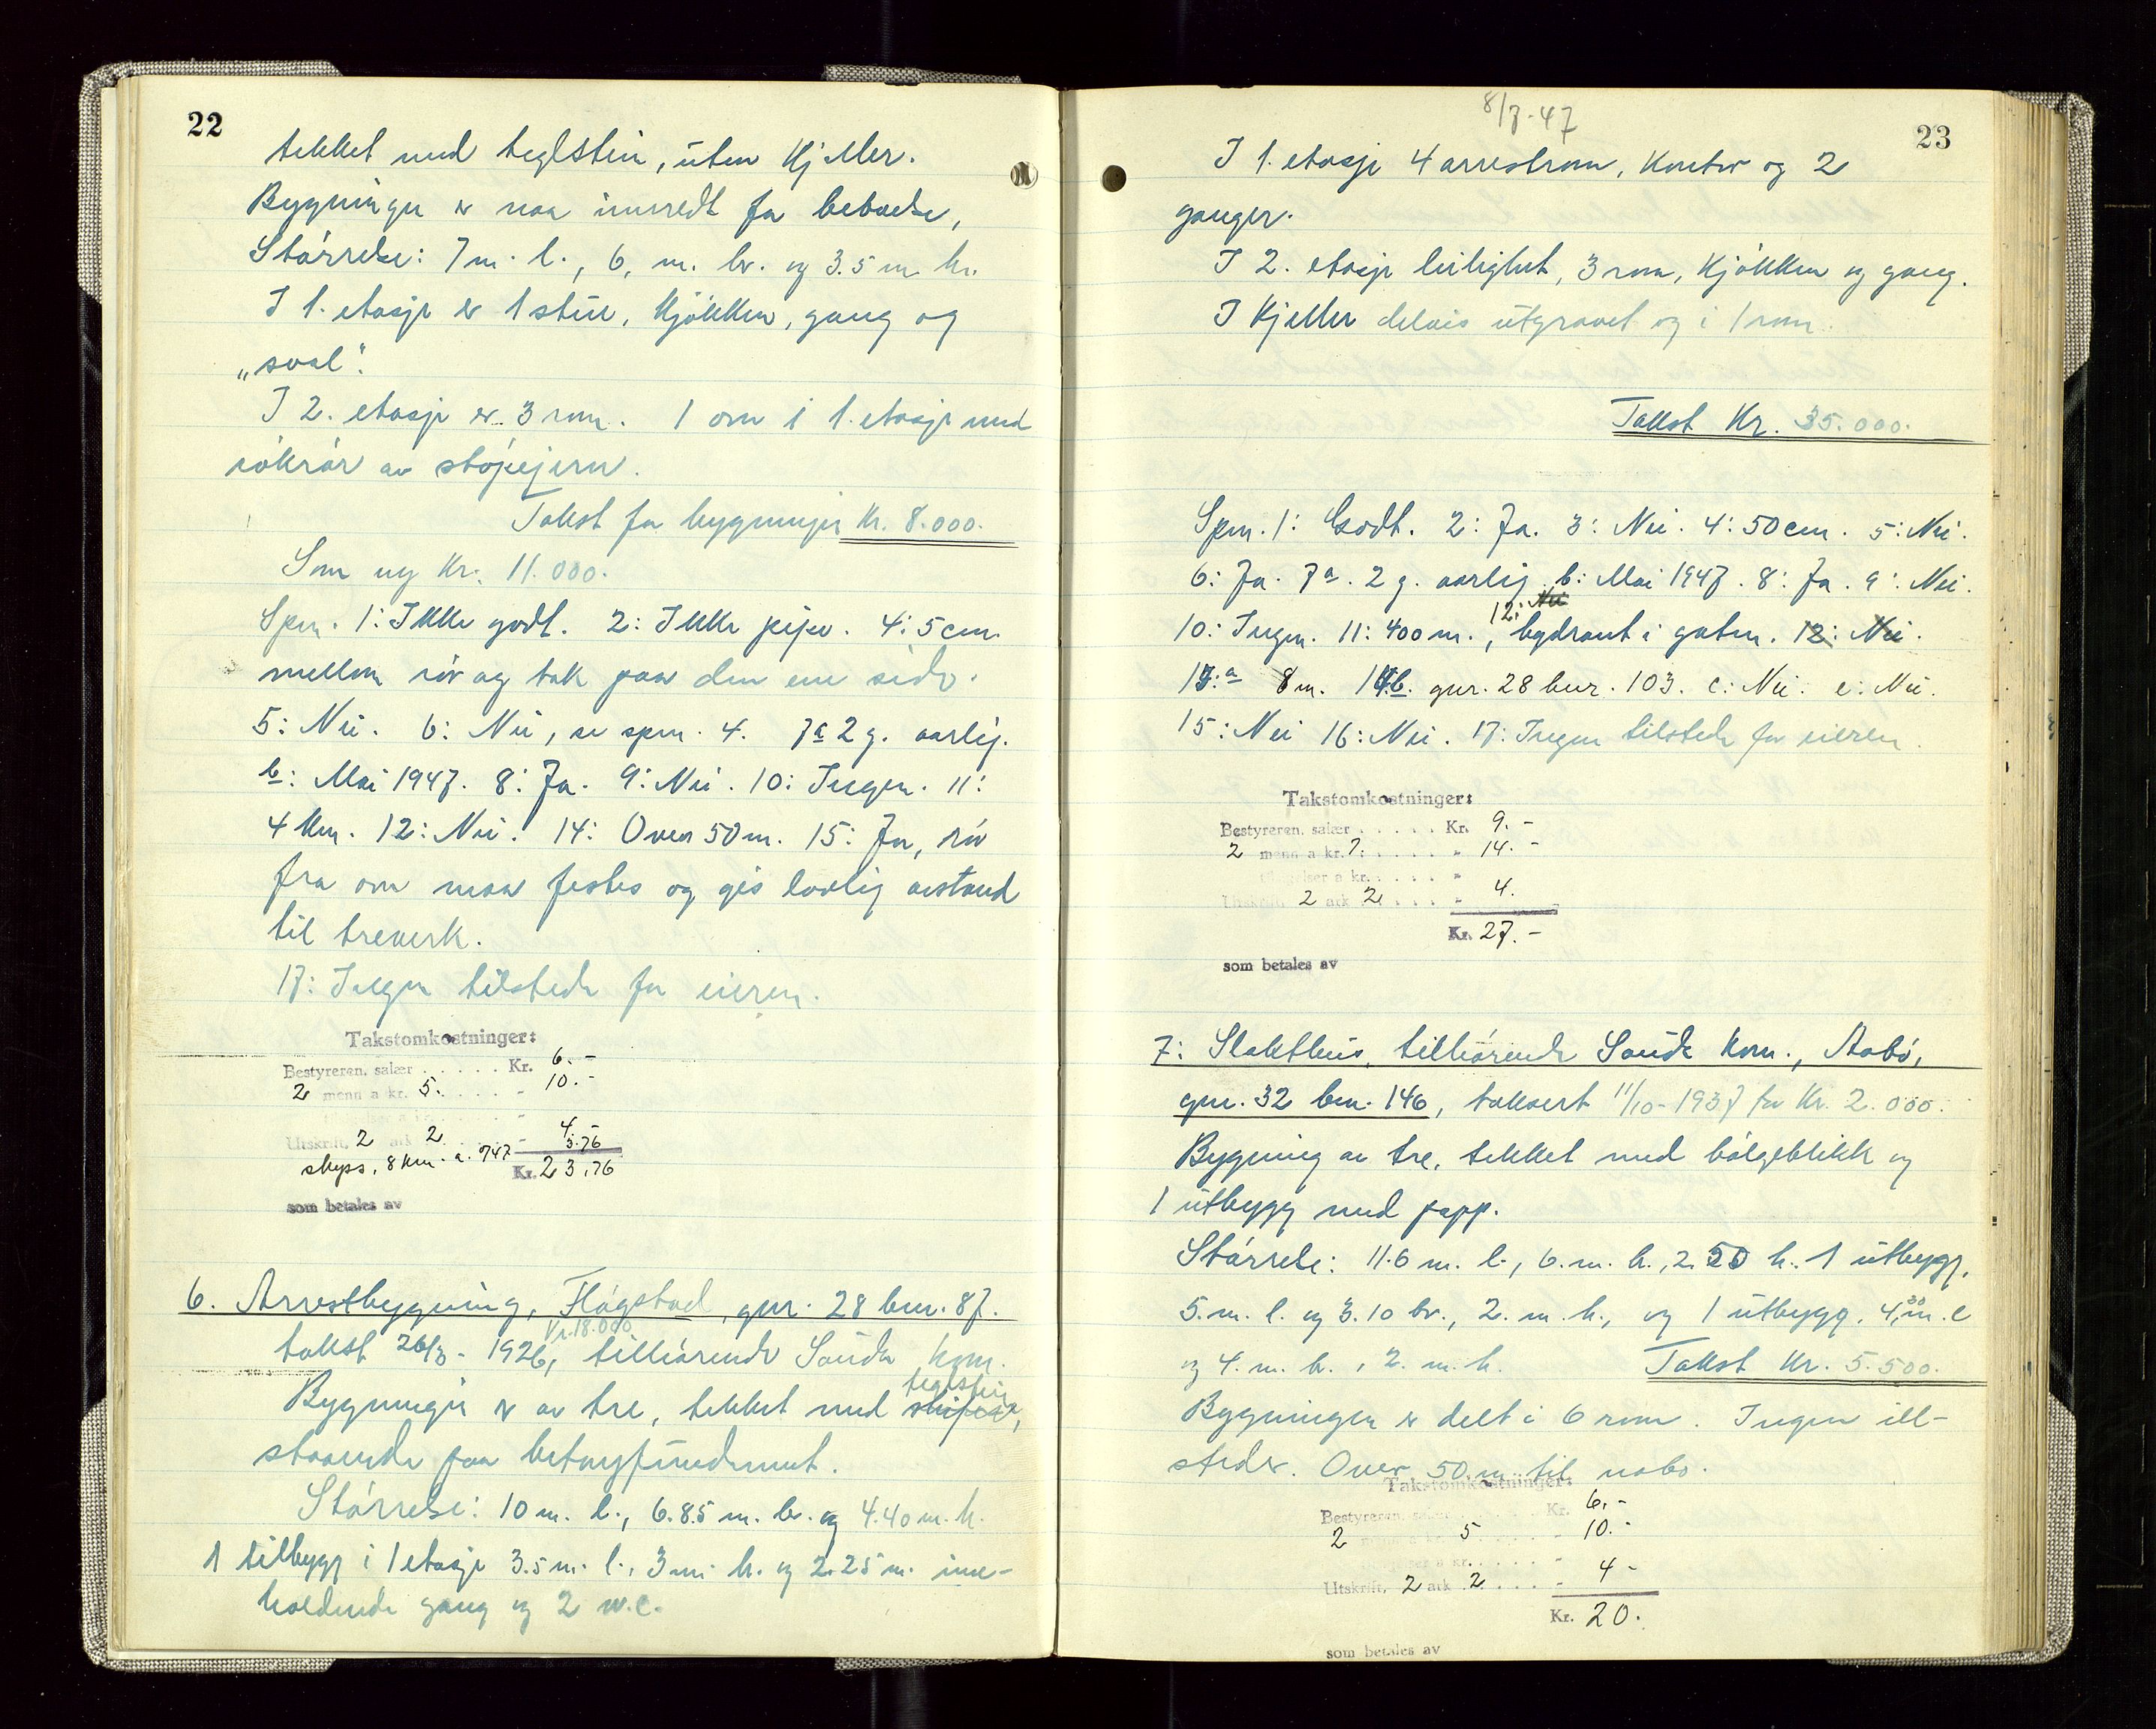 22
tekket med teglstein, uten Kjeller.
Bygningen er naa innredt for beboelse,
Størrelse: 7 m. l., 6, m. br. og 3.5 m h.
I 1. etasje er 1 stue, Kjøkken, gang og
„sval".
I 2. etasje er 3 rom. 1 ovn i 1. etasje med
rökrör av støpejern.
Takst for bygningen Kr. 8.000.
Som ny Kr. 11.000.
Spm. 1: Ikke godt. 2: Ikke pipe. 4: 5 cm.
mellom rör og tak paa den ene side.
5: Nei. 6: Nei, se spm. 4. 7a 2 g. aarlig.
b: Mai 1947. 8: Ja. 9: Nei. 10: Ingen. 11:
4 km. 12: Nei. 14: Over 50 m. 15: Ja, rör
fra ovn maa festes og gis lovlig avstand
til treverk.
17: Ingen tilstede for eieren.
Takstomkostninger:
Bestyreren, salær . . . . . Kr. 6.-
2 menn a kr. 5. . . . . - 10.-
Utskrift, 2 ark 2 . . . - 4.-
skyss, 8 km. a. 947 3.76
Kr. 23,76
som betales av
6. Arrestbygning, Fløgstad, gnr. 28 bnr. 87.
Kr. 18.000
takst 26/3 - 1926, tilhørende Sauda kom.
teglstein
Bygningen er av tre, tekket med skifer,
staaende paa betongfundament.
Størrelse: 10 m. l., 6.85 m. br. og 4.40 m. h.
1 tilbygg i 1 etasje 3.5 m. l., 3 m. br. og 2.25 m. inne-
holdende gang og 2 w.c.
8/7-47
23
I 1. etasje 4 arrestrom, Kontor og 2
ganger.
I 2. etasje leilighet, 3 rom, Kjøkken og gang.
I Kjeller delvis utgravet og i 1 rom.
Takst Kr. 35.000.
Spm. 1: Godt. 2: Ja. 3: Nei. 4: 50 cm. 5: Nei.
6: Ja. 7a. 2 g. aarlig. b: Mai 1947. 8: Ja. 9: Nei.
12: Nei
10: Ingen. 11: 400 m., hydrant i gaten. 12: Nei.
13:a 8 m. 14b. gnr. 28 bnr. 103. c: Nei. e: Nei.
15: Nei 16: Nei. 17: Ingen tilstede for eieren.
Takstomkostninger:
Bestyreren, salær . . . . . Kr. 9.-
2 menn a kr. 7. . . . . „ 14.-
a kr. . . . . „
Utskrift, 2 ark 2 . . . - 4.
Kr. 27.-
som betales av
7: Slakthus, tilhørende Sauda Kom., Aabø,
gnr. 32 bnr. 146, taksert 11/10-1937 for Kr. 2.000.
Bygning av tre, tekket med bølgeblikk og
1 utbygg med papp.
Størrelse: 11.6 m. l., 6. m. br., 2.50 h. 1 utbygg,
5. m. l. og 3.10 br., 2. m. h., og 1 utbygg, 4,30 m. l
og 4. m. br., 2. m. h. Takst Kr. 5.500.
Bygningen er delt i 6 rom. Ingen ill-
steder. Over 50 m til nabo.
Takstomkostninger:
Bestyreren, salær Kr. 6,-
2 menn a kr. 5 . . . . . - 10.-
a kr. . . . . . -
Utskrift, 2 ark 2 . . . . - 4-
Kr. 20.
som betales av